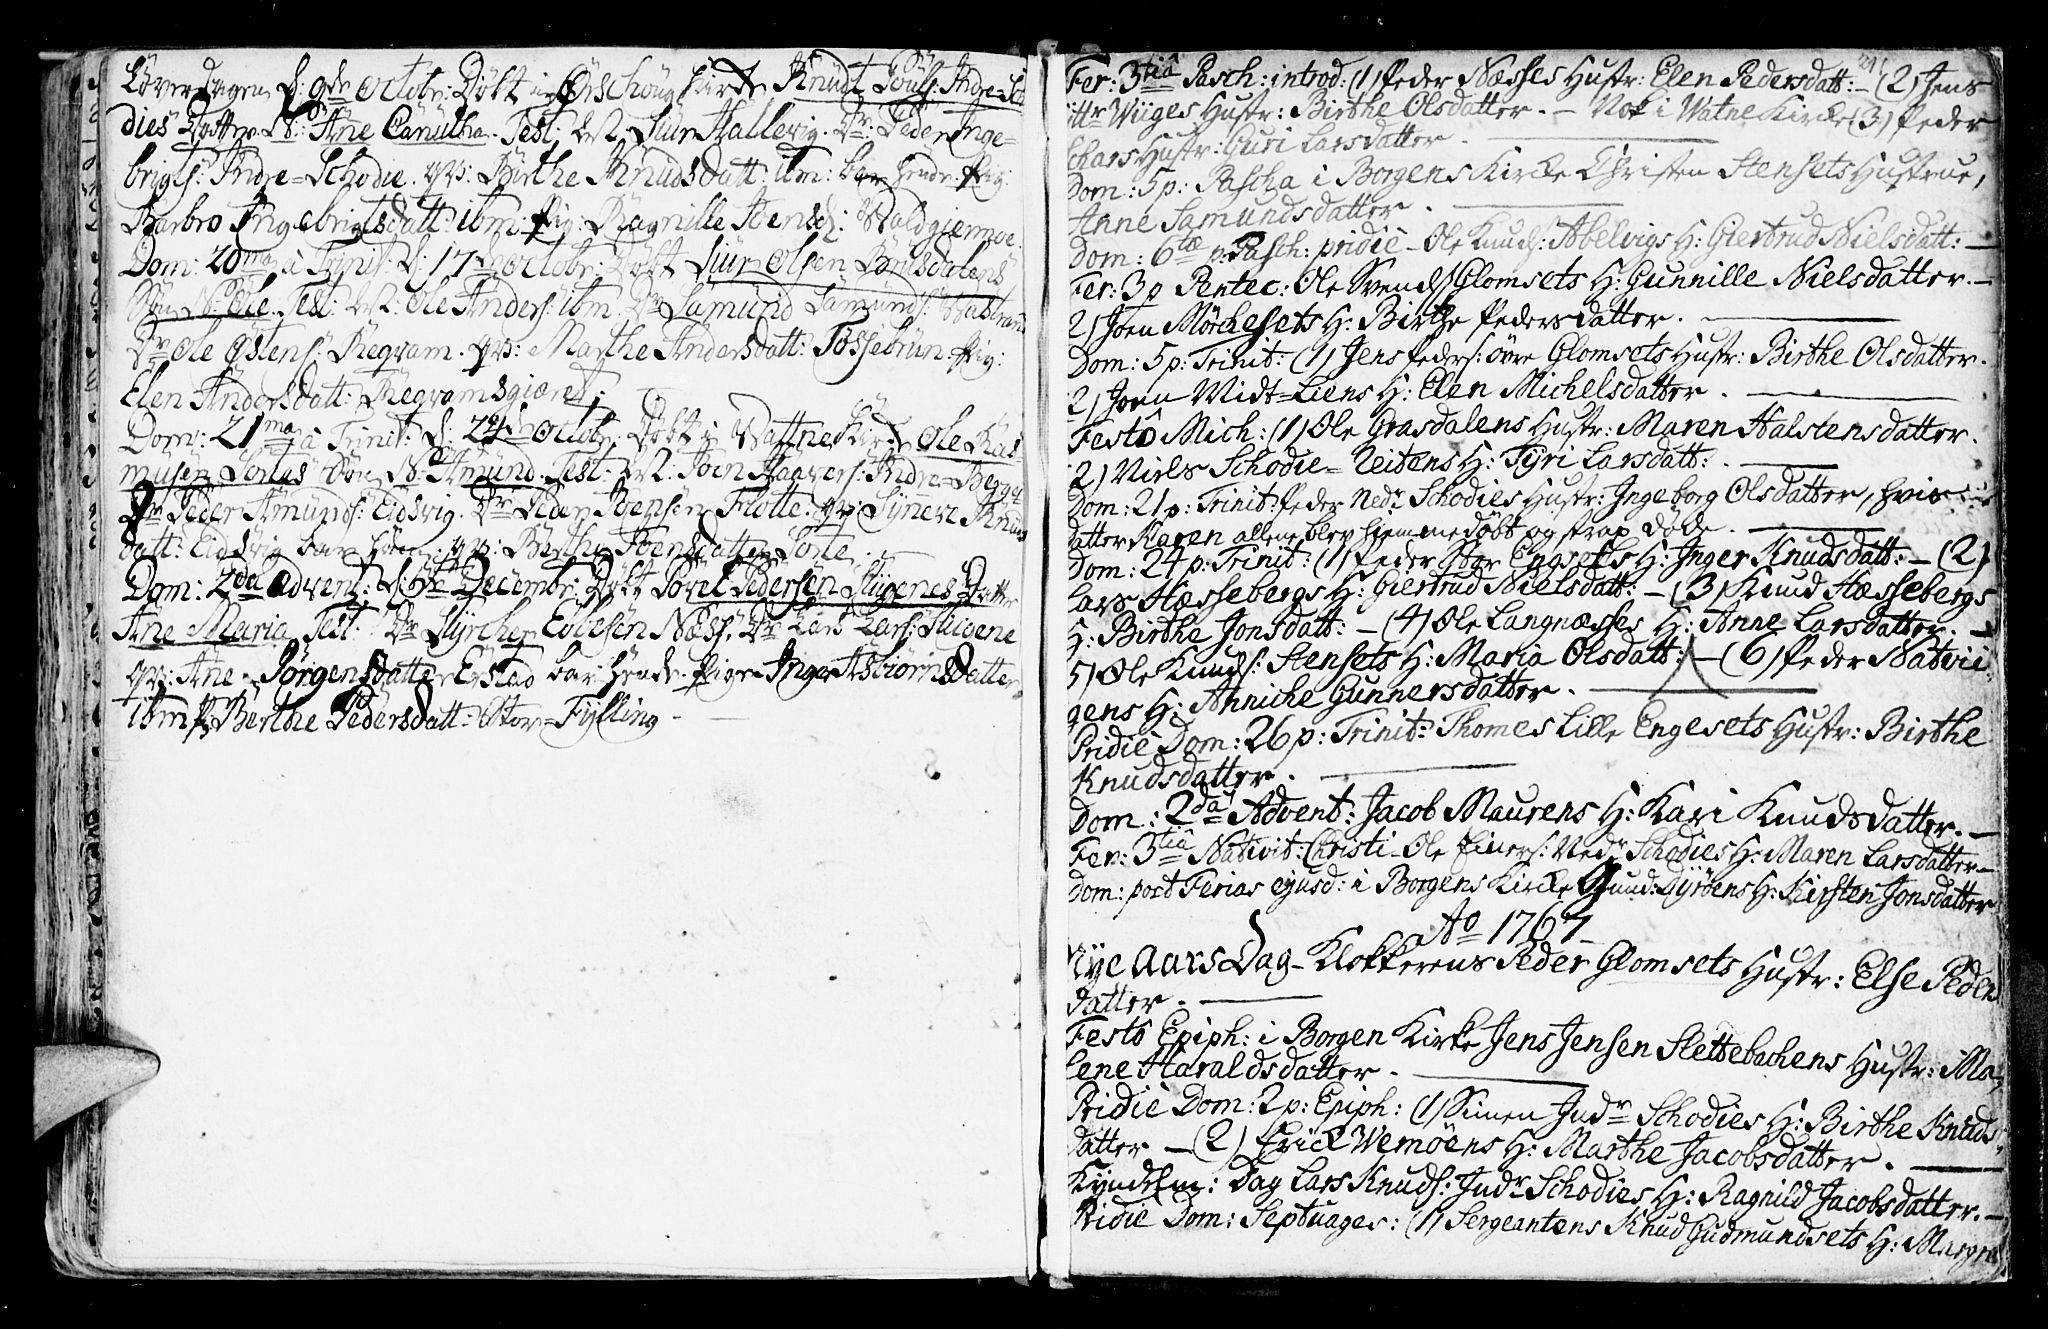 Løverdagen d: 9de Octobr: Døbt i Ørschoug Kirke Knudt Pouls: Indre=Scho
dies Dotter N: Ane Canutha. Test: Dr. Siur Hallevig. Dr: Peder Inge=
brigts: Indre=Schodie. qv: Birthe Knudsdatt: ibm: bar hende. Pig:
Barbro Ingebrigtsdatt: ibm: Pig: Ragnille Joensd: Waldgiermoe.
Dom: 20ma à Trinit: d: 17de Octobr: Døbt Siur Olsen Brusdalens
Søn N: Ole. Test: Ole Anders: ibm. Dr Samund Samunds:
Dr Ole Østens: Regvam. qv: Marthe Andersdatt: Fossebrun. Pig:
Elen Andersdatt: Regvamsgiæret.
Dom: 21ma à Trinit: d: 24de Octobr: Døbt i Wattne Kirke Ole Ras=
musen Lortes Søn N. Amund. Test: Joen Haavers: Indre=
Dr Peder Amunds: Eidsvig. Dr Peder Joensen Flotte. qv: Synneve Knuds
datt: Eidsvig bar hann. qv: Berthe Joensdatter Lorte.
Dom: 2da Advent: d: 5te Decembr: Døbt Povel Pedersen Stigenes Dotter
Ane Maria. Test: Dr Styrcher Ellesen Næss. Dr Lars Lars: Stigene
qv: Ane Jørgensdatter Erstad bar hende. Pigen Inger Asbiørnsdatter
ibm P: Berthe Pedersdatt: Stor=Fylling
Fer: 3tia Pasch: introd: (1) Peder Næsses Hustr: Elen Pedersdatt: – (2) Jens
Wiiges Hustr: Birthe Olsdatter. – Nok i Watne Kircke (3) Peder
Hustr: Guri Larsdatter
Dom: 5 p: Pascha i Borgens Kircke Christen Stensets Hustrue,
Anne Samundsdatter.
Dom: 6tæ p: Pasch: pridiè – Ole Knuds: Abelvigs H: Giertrud Nielsdatt: –
Fer: 3 p Pentec: Ole Svends: Glomsets H: Gunnille Nielsdatter. –
2) Joen Mörchesets H: Birthe Pedersdatter.
Dom: 5 p: Trinit: (1) Jens Peders: övre Glomsets Hustr: Birthe Olsdatter.
2) Joen Widt=Liens H: Elen Michelsdatter.
Festô Mich: (1) Ole Grasdalens Hustr: Maren Halstensdatter.
2) Niels Schodie=Reitens H: Syri Larsdatt:
Dom: 21 p: Trinit: Peder Nedr Schodies Hustr: Ingeborg Olsdatter, hvis
datter Karen allene blev hiemmedöbt og strax döde.
Dom: 24 p: Trinit: (1) Peder Stor Engsets H: Inger Knudsdatt: – (2)
Lars Hæssebergs H: Giertrud Nielsdatt: – (3) Knud Hæssebergs
H: Birthe Jonsdatt: – (4) Ole Langnæsses H: Anne Larsdatter. –
5) Ole Knuds: Stensets H: Maria Olsdatt: – (6) Peder Natvii
gens H: Anniche Gunnersdatter.
Pridiè Dom: 26 p: Trinit: Thomes Lille Engesets Hustr: Birthe
Knudsdatter.
Dom: 2da Advent: Jacob Maurens H: Kari Knudsdatter. –
Fer: 3tiâ Nativit: Christi – Ole Einers: Nedr Schodies H: Maren Larsdatter –
Dom: post Ferias ejusd: i Borgens Kircke Gund: Dyröens H: Kirsten Jonsdatter
Ao 1767
Nye Aars Dag – Klokkerens Peder Glomsets Hustr: Else Peders
datter.
Festô Epiph: i Borgen Kirke Jens Jensen Slettebachens Hustr: Ma,
lene Haraldsdatter.
Pridiè Dom: 2 p: Epiph: (1) Simen Indr Schodies H: Birthe Knuds
datter – (2) Erick Wemöens H: Marthe Jacobsdatter.
Kyndelm: Dag Lars Knuds: Indr Schodies H: Ragnild Jacobsdatter. –
Pridiè Dom: Septuages: (1) Sergeantens Knud Gudmundsets H: Margre